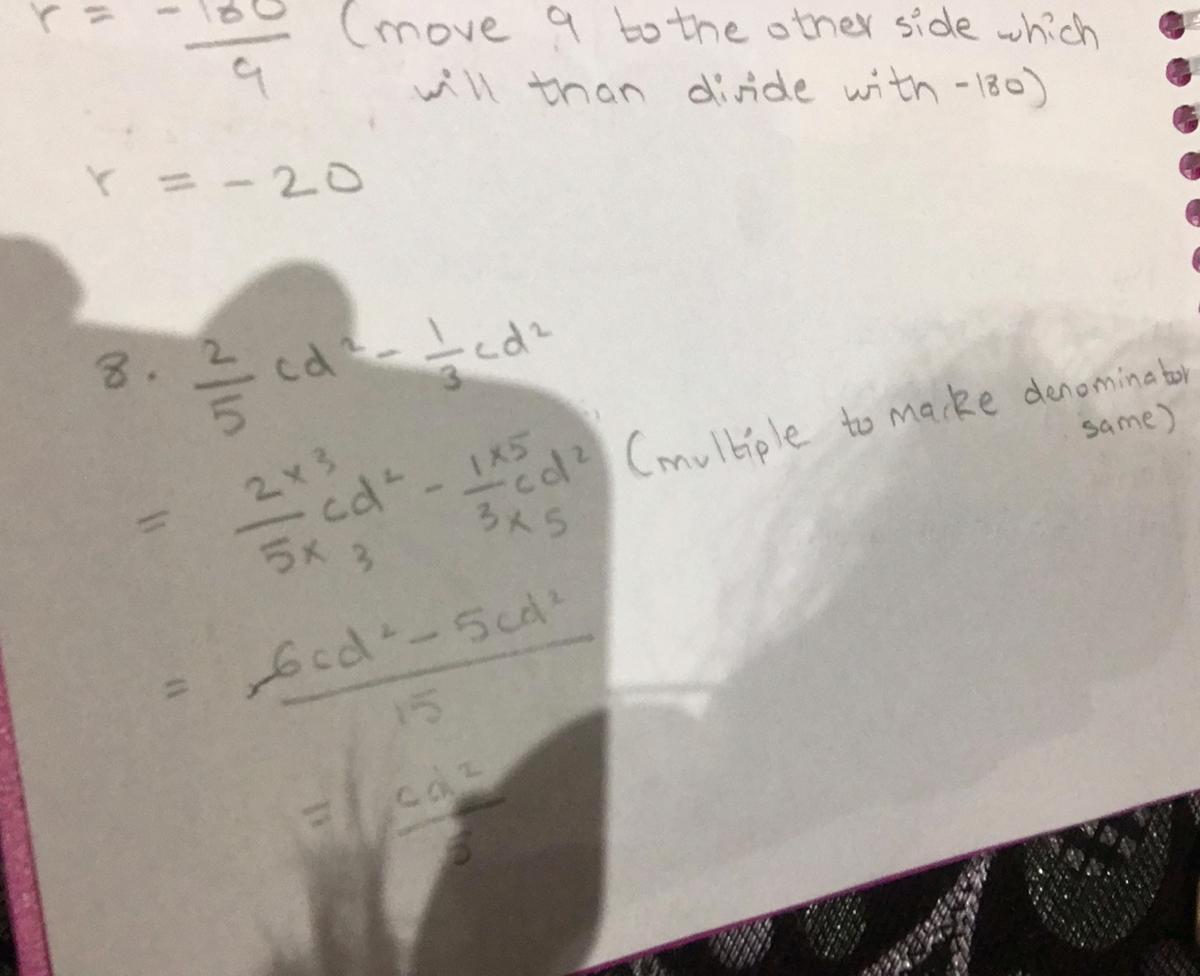 r = -180/9 (move 9 to the other side which
will than divide with -180)
r = -20
8. 2/5 cd² - 1/3 cd²
= 2×3/5×3 cd² - 1×5/3×5 cd² (multiple to make denominator
same)
= 6cd² - 5cd²/15
= cd²